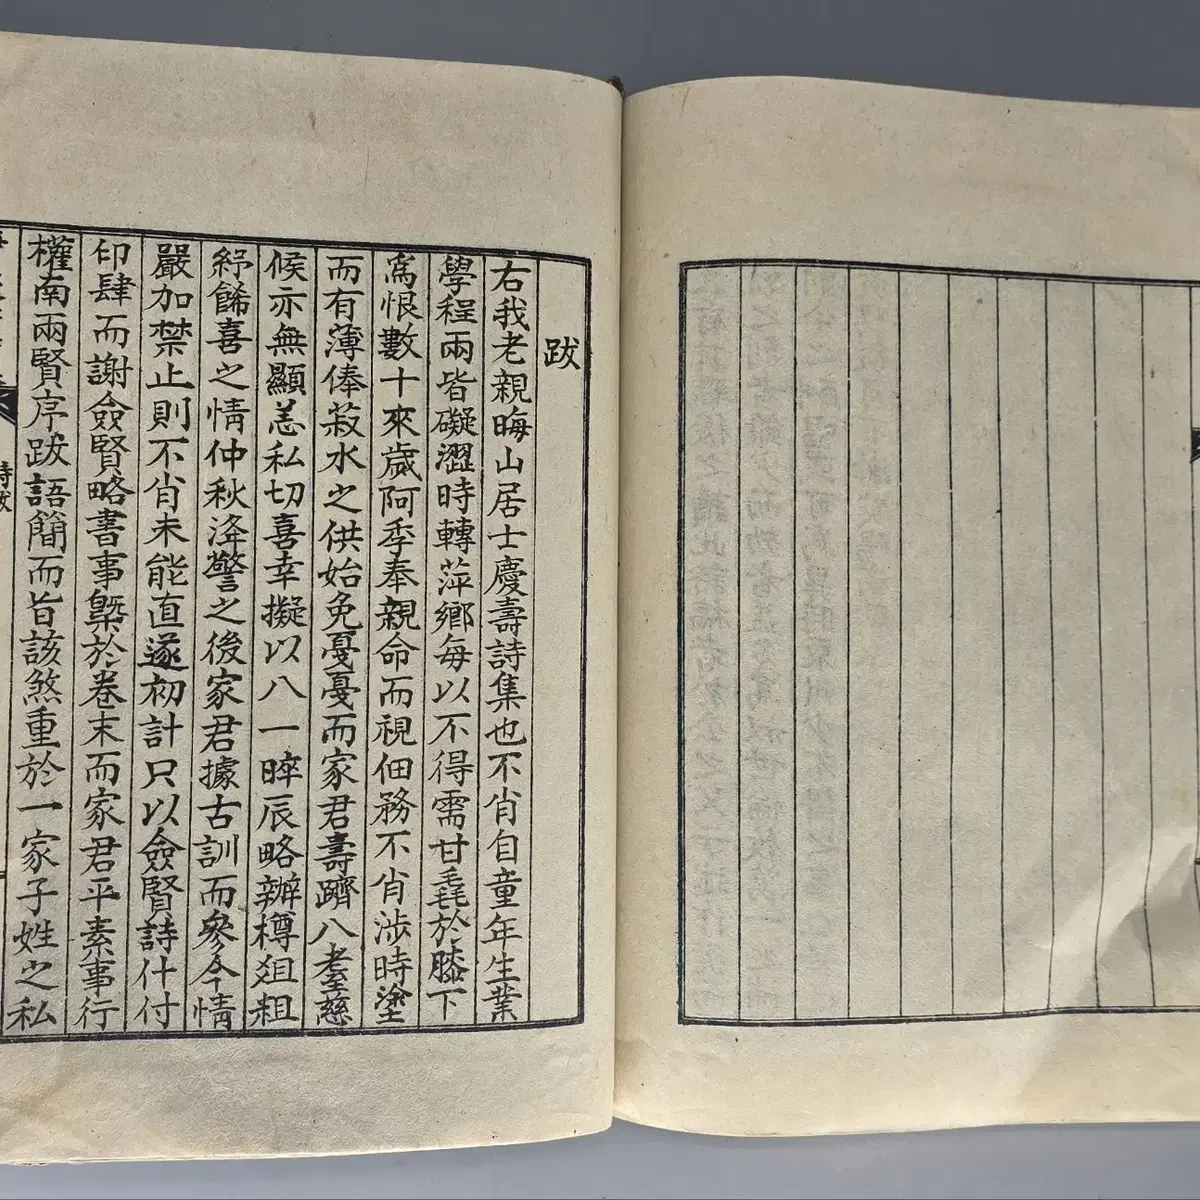 跋
右我老親晦山居士慶壽詩集也不肖自童年生業
學程兩皆礙澀時轉萍鄉每以不得需甘毳於膝下
爲恨數十來歲阿季奉親命而視佃務不肖涉時塗
而有薄俸菽水之供始免戞戞而家君壽躋八耋慈
候亦無顯恙私切喜幸擬以八一晬辰略辦樽俎粗
紓餙喜之情仲秋洚警之後家君據古訓而參今情
嚴加禁止則不肖未能直遂初計只以僉賢詩什付
印肆而謝僉賢略書事槩於卷末而家君平素事行
權南兩賢序跋語簡而旨該煞重於一家子姓之私